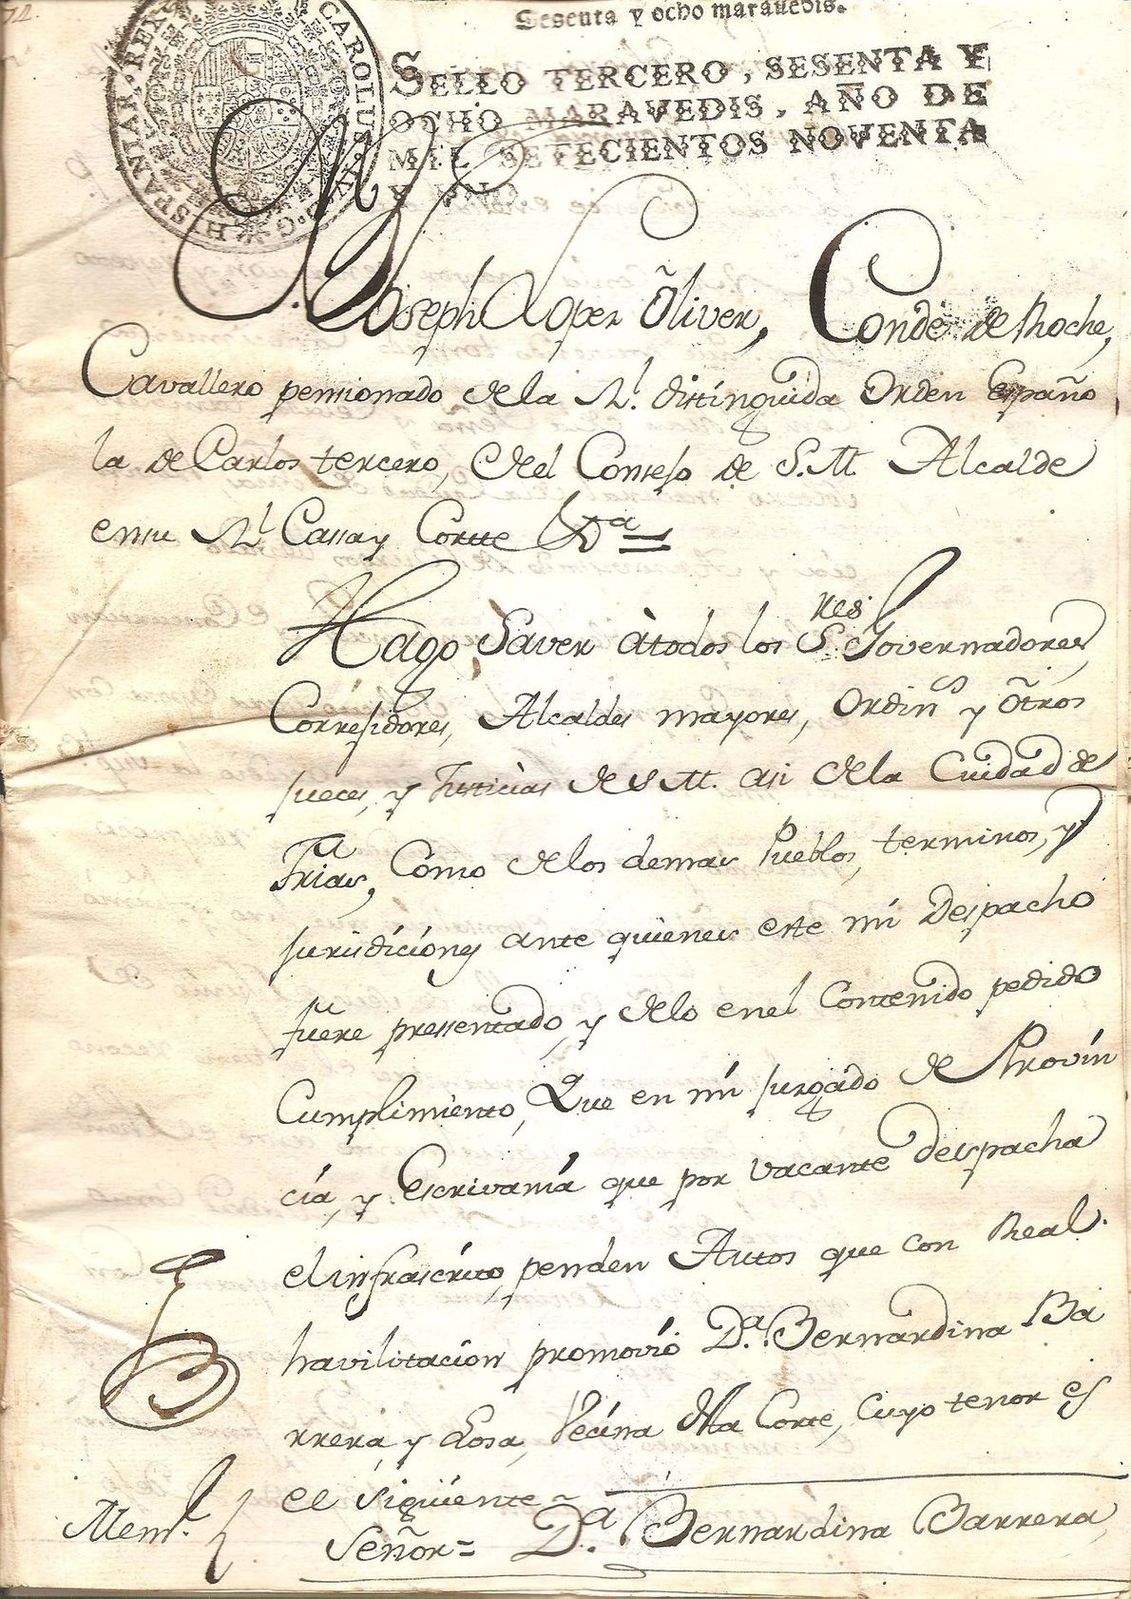 Sesenta y ocho maravedis.
HISPANIAR. REX CAROLUS D.G.
SELLO TERCERO, SESENTA Y
OCHO MARAVEDIS, AÑO DE
MIL SETECIENTOS NOVENTA
Y UNO.
Joseph Lopez Õliver, Conde de Roche,
Cavallero pensionado de la Rl. distinguida Orden Españo
la de Carlos tercero, del Consejo de S.M. Alcalde
ensu Rl. Cassa y Cortte &a
Hago Saver àtodos los Sres. Governadores,
Corregidores, Alcaldes mayores, Ordins. y Õtros
Jueces, y Justicias de S.M. asi de la Cuidad de
Frias, Como de los demas Pueblos, terminos, y
jurisdiciones ante quienes este mi Despacho
fuere pressentado, y delo enel Contenido pedido
Cumplimiento, Que en mi juzgado de Provin
cia, y Escrivania que por vacante despacha
el infrascrito, penden Autos que con Real
havilitacion promovió Da. Bernardina Ba
rrera, y Losa, Vecina de esta Corte, Cuyo tenor es
el siguiente
Meml. Señor = Da. Bernardina Barrera,